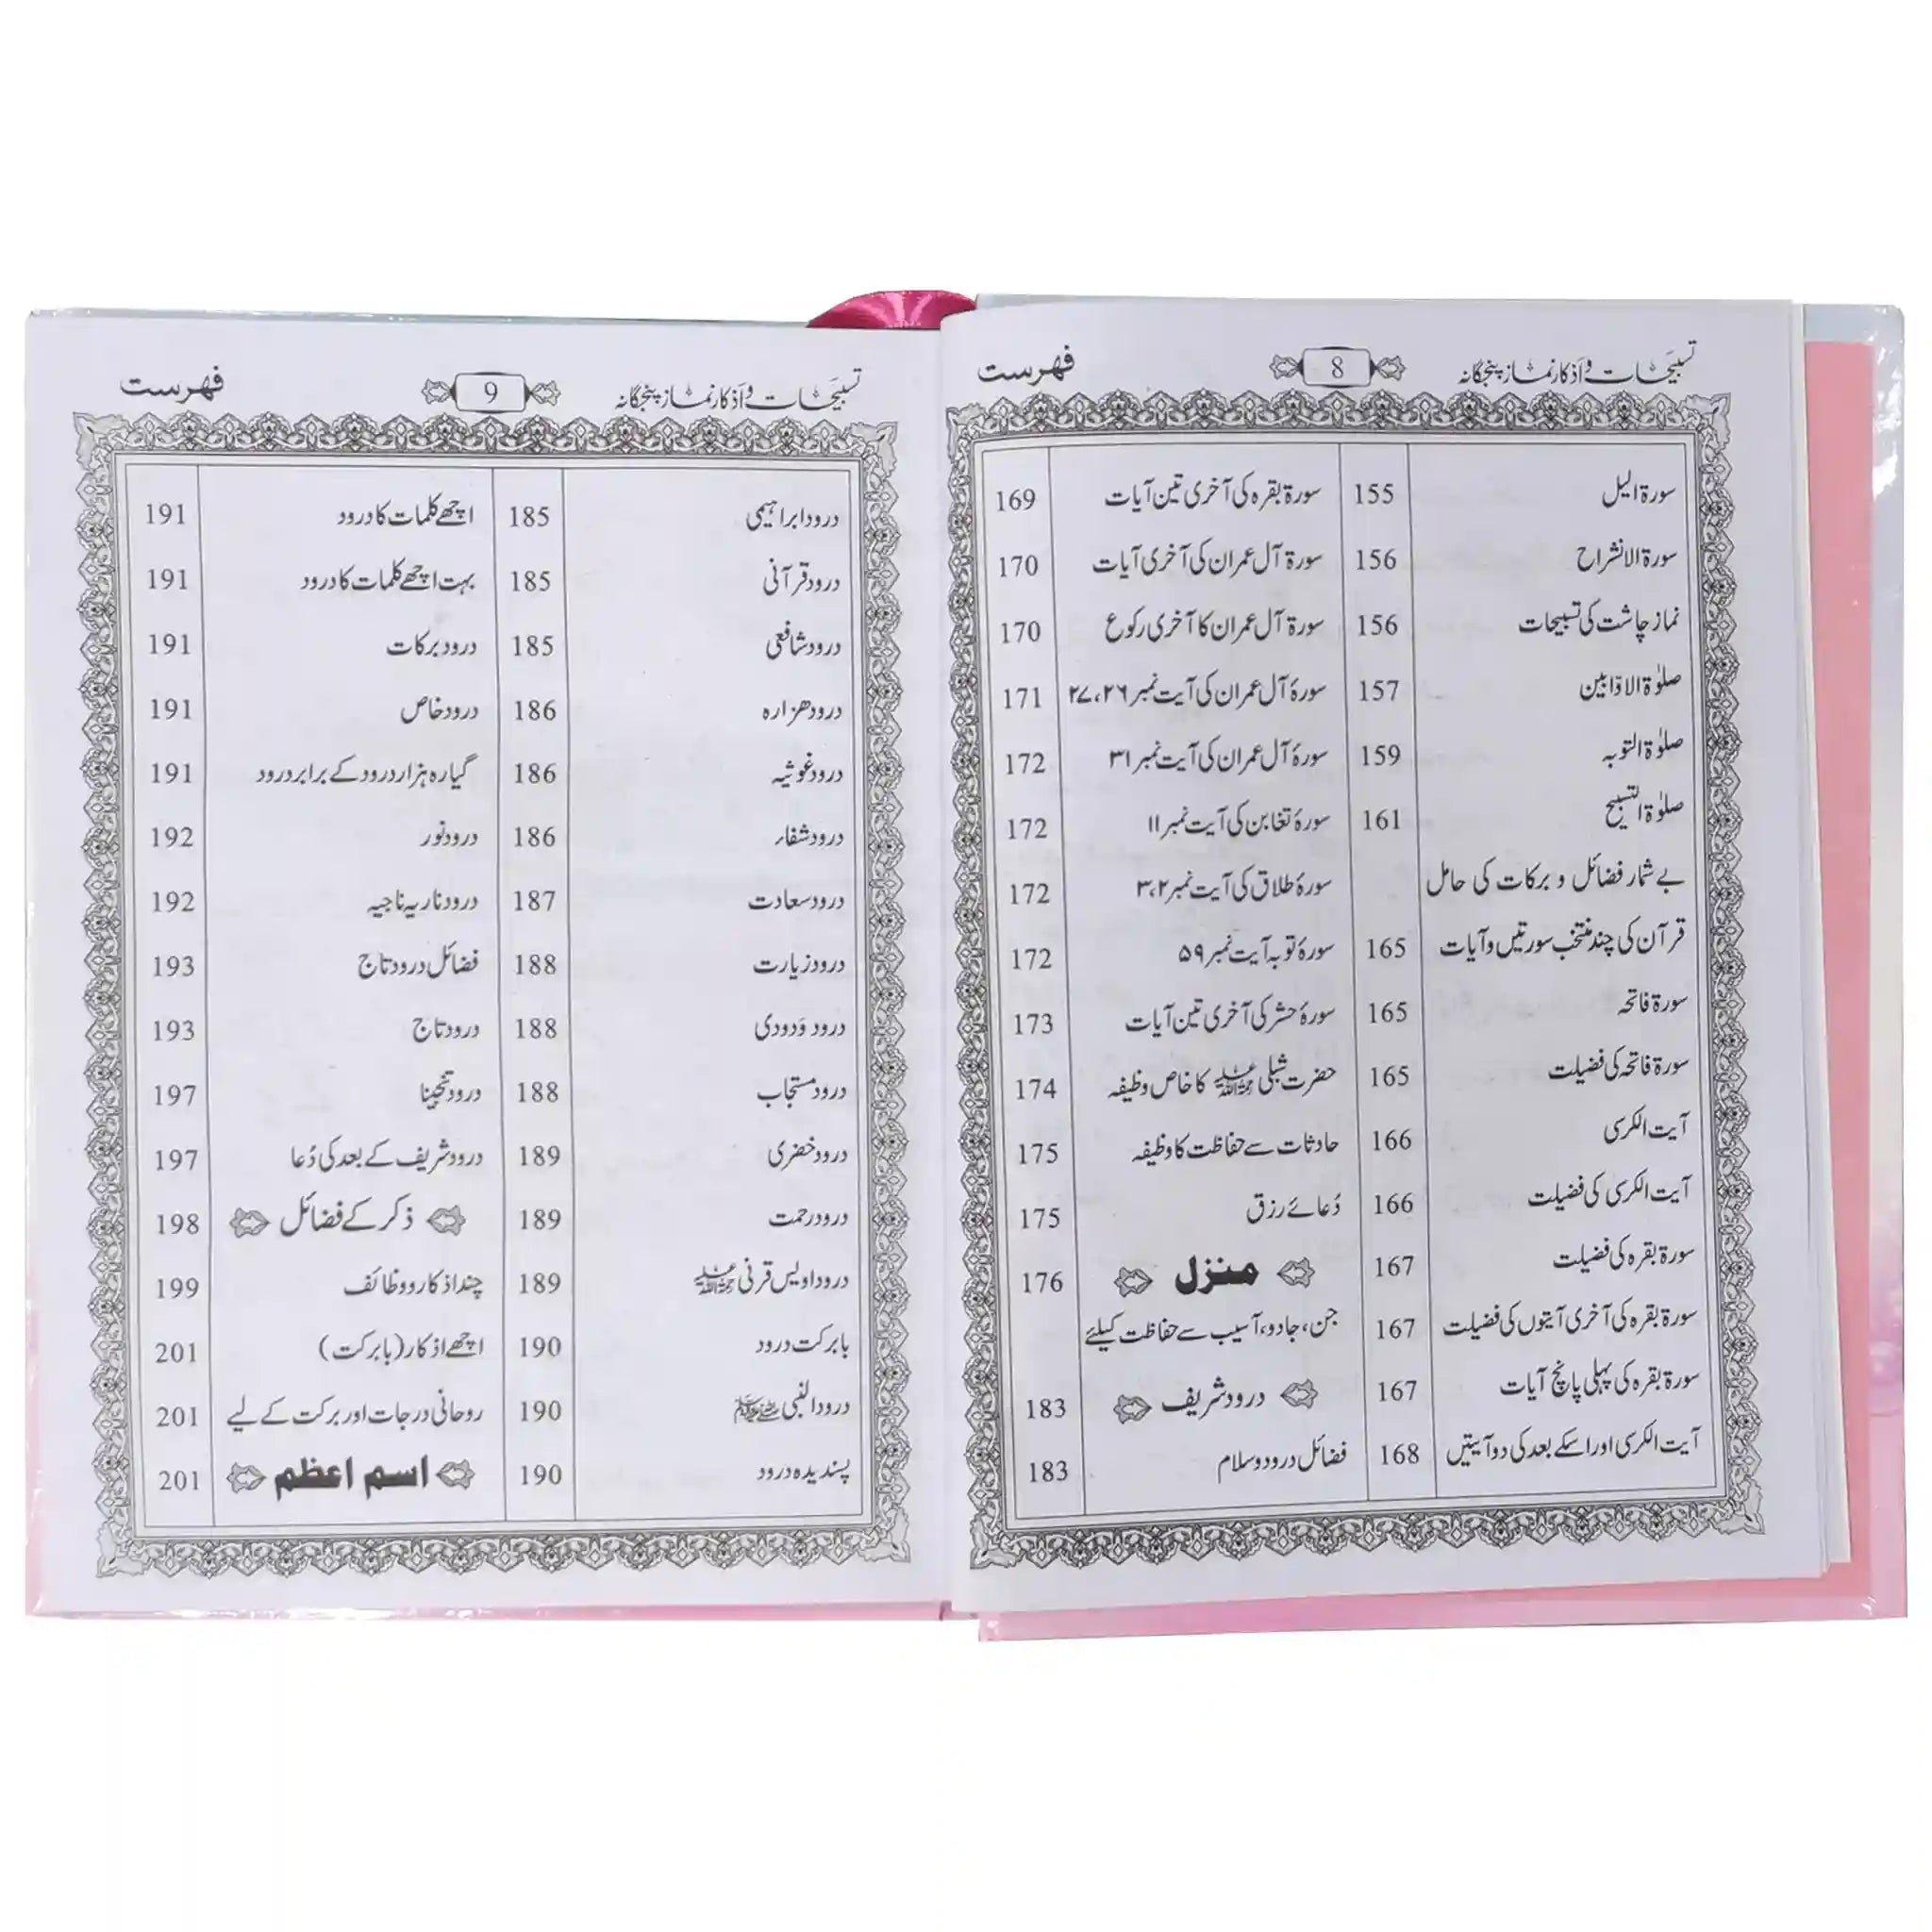 تسبیحات و اَذکار نماز پنجگانہ 8 فہرست
سورۃ الیل 155
سورۃ الانشراح 156
نماز چاشت کی تسبیحات 156
صلوٰۃ الاوّابین 157
صلوٰۃ التوبہ 159
صلوٰۃ التسبیح 161
بے شمار فضائل و برکات کی حامل
قرآن کی چند منتخب سورتیں و آیات 165
سورۃ فاتحہ 165
سورۃ فاتحہ کی فضیلت 165
آیت الکرسی 166
آیت الکرسی کی فضیلت 166
سورۃ بقرہ کی فضیلت 167
سورۃ بقرہ کی آخری آیتوں کی فضیلت 167
سورۃ بقرہ کی پہلی پانچ آیات 167
آیت الکرسی اور اسکے بعد کی دو آیتیں 168
سورۃ بقرہ کی آخری تین آیات 169
سورۃ آل عمران کی آخری آیات 170
سورۃ آل عمران کا آخری رکوع 170
سورۂ آل عمران کی آیت نمبر ۲۶، ۲۷ 171
سورۂ آل عمران کی آیت نمبر ۳۱ 172
سورۂ تغابن کی آیت نمبر ۱۱ 172
سورۂ طلاق کی آیت نمبر ۲، ۳ 172
سورۂ توبہ آیت نمبر ۵۹ 172
سورۂ حشر کی آخری تین آیات 173
حضرت شبلی رحمۃ اللہ علیہ کا خاص وظیفہ 174
حادثات سے حفاظت کا وظیفہ 175
دُعائے رزق 175
منزل 176
جن، جادو، آسیب سے حفاظت کیلئے
درود شریف 183
فضائل درود و سلام 183
تسبیحات و اَذکار نماز پنجگانہ 9 فہرست
درود ابراہیمی 185
درود قرآنی 185
درود شافعی 185
درود ھزارہ 186
درود غوثیہ 186
درود شفاء 186
درود سعادت 187
درود زیارت 188
درود وَدودی 188
درود مستجاب 188
درود خضری 189
درود رحمت 189
درود اویس قرنی رحمۃ اللہ علیہ 189
بابرکت درود 190
درود النبی ﷺ 190
پسندیدہ درود 190
اچھے کلمات کا درود 191
بہت اچھے کلمات کا درود 191
درود برکات 191
درود خاص 191
گیارہ ہزار درود کے برابر درود 191
درود نور 192
درود ناریہ ناجیہ 192
فضائل درود تاج 193
درود تاج 193
درود تنجینا 197
درود شریف کے بعد کی دُعا 197
ذکر کے فضائل 198
چند اذکار و وظائف 199
اچھے اذکار (بابرکت) 201
روحانی درجات اور برکت کے لیے 201
اسم اعظم 201